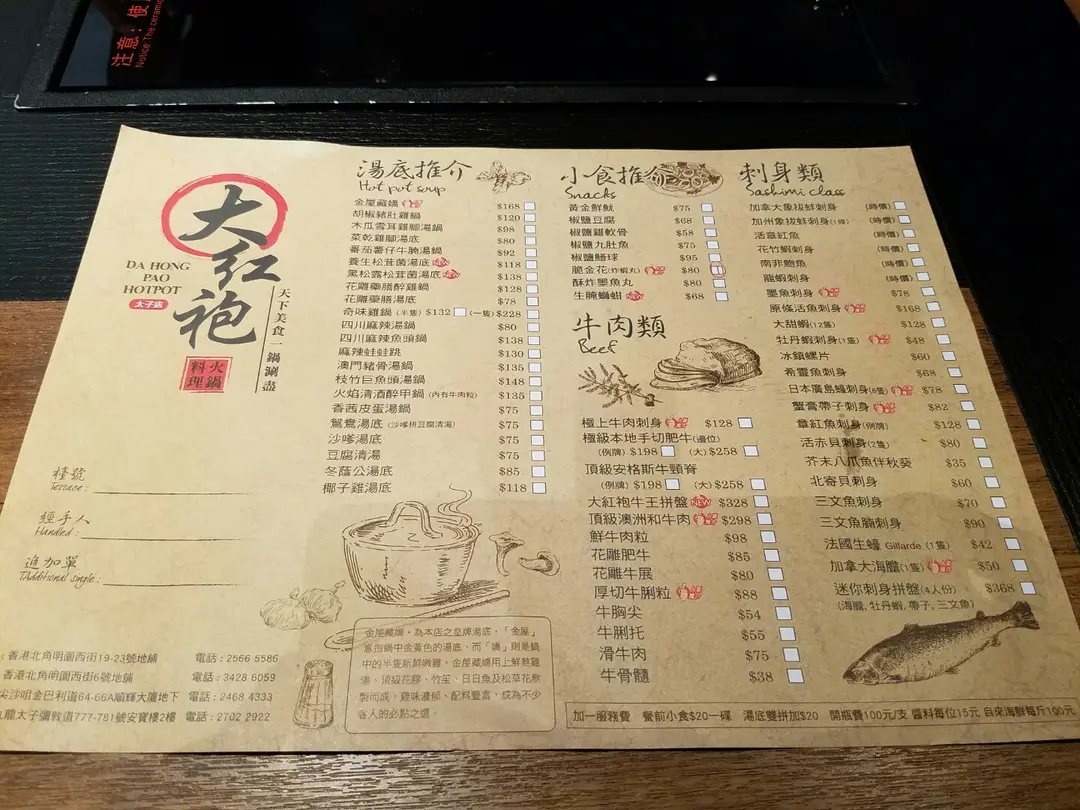 注意：使
Notice:The ceramic
大紅袍
DA HONG
PAO
HOTPOT
太子店
天下美食一鍋涮盡
火鍋
料理
檯號
Terrace :
經手人
Handled :
追加單
香港北角明園西街19-23號地舖 電話：2566 5586
香港北角明園西街6號地舖 電話：3428 6059
尖沙咀金巴利道64-66A順輝大廈地下 電話：2468 4333
九龍太子彌敦道777-781號安寶樓2樓 電話：2702 2922
湯底推介
Hot pot soup
金屋藏嬌 $168
胡椒豬肚雞鍋 $120
木瓜雪耳雞腳湯鍋 $98
菜乾雞腳湯底 $80
番茄薯仔牛腩湯鍋 $92
養生松茸菌湯底 $118
黑松露松茸菌湯底 $138
花雕藥膳醉雞鍋 $128
花雕藥膳湯底 $78
奇味雞鍋（半隻）$132 （一隻）$228
四川麻辣湯鍋 $80
四川麻辣魚頭鍋 $138
麻辣蛙蛙跳 $130
澳門豬骨湯鍋 $135
枝竹巨魚頭湯鍋 $148
火焰清酒醉甲鍋（內有牛肉粒） $135
香茜皮蛋湯鍋 $75
鴛鴦湯底（沙嗲拼豆腐清湯） $75
沙嗲湯底 $75
豆腐清湯 $75
冬蔭公湯底 $85
椰子雞湯底 $118
金屋藏嬌，為本店之皇牌湯底，「金屋」
意指鍋中金黃色的湯底，而「嬌」則是鍋
中的半隻新鮮嫩雞，金屋藏嬌用上鮮熬雞
湯、頂級花膠、竹笙、日日魚及松草花熬
製而成，雞味濃郁、配料豐富，成為不少
客人的必點之選。
小食推介
Snacks
黃金鮮魷 $75
椒鹽豆腐 $68
椒鹽雞軟骨 $58
椒鹽九肚魚 $75
椒鹽鱔球 $95
脆金花（炸蝦丸） $80
酥炸墨魚丸 $80
生腌螄蚶 NEW $68
牛肉類
Beef
極上牛肉刺身 $128
極級本地手切肥牛（邊位）
（例牌）$198 （大）$258
頂級安格斯牛頸脊
（例牌）$198 （大）$258
大紅袍牛王拼盤 NEW $328
頂級澳洲和牛肉 $298
鮮牛肉粒 $98
花雕肥牛 $85
花雕牛展 $80
厚切牛脷粒 $88
牛胸尖 $54
牛脷托 $55
滑牛肉 $75
牛骨髓 $38
刺身類
Sashimi class
加拿大象拔蚌刺身 （時價）
加州象拔蚌刺身(1條) （時價）
活章紅魚 （時價）
花竹蝦刺身 （時價）
南非鮑魚 （時價）
龍蝦刺身 （時價）
墨魚刺身 $78
原條活魚刺身 $168
大甜蝦(12隻) $128
牡丹蝦刺身(1隻) $48
冰鎮螺片 $60
希靈魚刺身 $68
日本廣島蠔刺身(6隻) $78
蟹膏帶子刺身 $82
章紅魚刺身(例牌) $128
活赤貝刺身(2隻) $80
芥末八爪魚伴秋葵 $35
北寄貝刺身 $60
三文魚刺身 $70
三文魚腩刺身 $90
法國生蠔 Gillarde（1隻） $42
加拿大海膽(1隻) $50
迷你刺身拼盤(4人份) $368
（海膽, 牡丹蝦, 帶子, 三文魚）
加一服務費 餐前小食$20一碟 湯底雙拼加$20 開瓶費100元/支 醬料每位15元 自來海鮮每斤100元